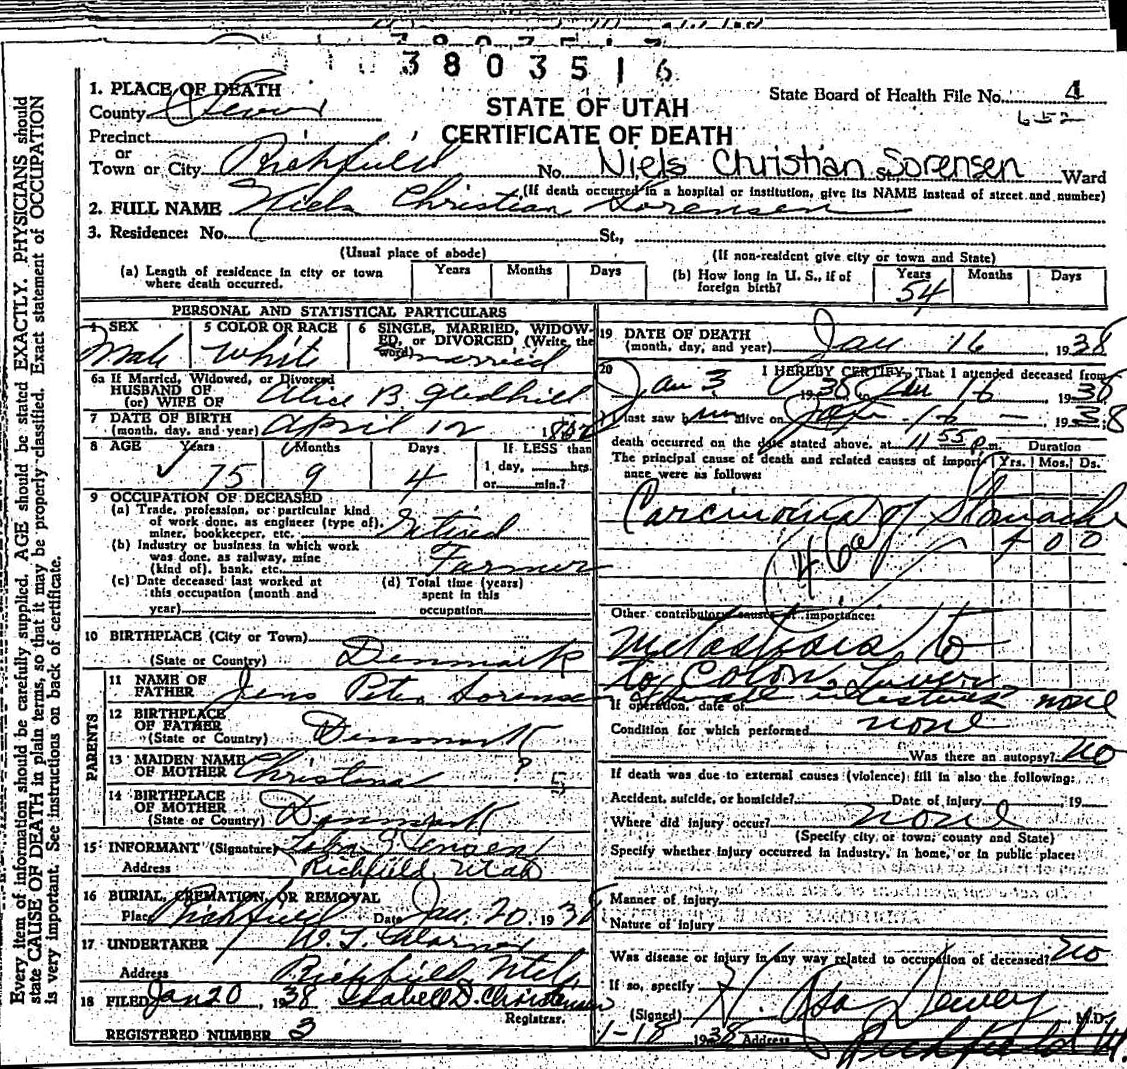 3803516
1. PLACE OF DEATH
County Sevier
Precinct
or
Town or City Richfield
STATE OF UTAH
CERTIFICATE OF DEATH
State Board of Health File No. 4
652
No. Niels Christian Sorensen St. Ward
(If death occurred in a hospital or institution, give its NAME instead of street and number)
2. FULL NAME Niels Christian Sorensen
3. Residence: No. St.,
(Usual place of abode) (If non-resident give city or town and State)
(a) Length of residence in city or town where death occurred. Years Months Days
(b) How long in U. S., if of foreign birth? Years 54 Months Days
PERSONAL AND STATISTICAL PARTICULARS
4 SEX Male
5 COLOR OR RACE White
6 SINGLE, MARRIED, WIDOWED, or DIVORCED (Write the word) married
6a If Married, Widowed, or Divorced
HUSBAND OF
(or) WIFE OF Alice B. Gledhill
7 DATE OF BIRTH
(month, day, and year) April 12 1862
8 AGE Years 75 Months 9 Days 4 If LESS than
1 day, hrs.
or min.?
9 OCCUPATION OF DECEASED
(a) Trade, profession, or particular kind
of work done, as engineer (type of),
miner, bookkeeper, etc. retired
(b) Industry or business in which work
was done, as railway, mine
(kind of), bank, etc. Farmer
(c) Date deceased last worked at
this occupation (month and
year)
(d) Total time (years)
spent in this
occupation
10 BIRTHPLACE (City or Town)
(State or Country) Denmark
PARENTS
11 NAME OF
FATHER Jens Peter Sorensen
12 BIRTHPLACE
OF FATHER
(State or Country) Denmark
13 MAIDEN NAME
OF MOTHER Christina ?
5
14 BIRTHPLACE
OF MOTHER
(State or Country) Denmark
15 INFORMANT (Signature) Jensen
Address Richfield, Utah
16 BURIAL, CREMATION, OR REMOVAL
Place Richfield Date Jan. 20, 1938
17 UNDERTAKER
Address Richfield, Utah
18 FILED Jan 20, 1938 Isabell D. Christensen
Registrar.
REGISTERED NUMBER 3
19 DATE OF DEATH
(month, day, and year) Jan 16, 1938
20 I HEREBY CERTIFY, That I attended deceased from
Jan 3, 1938 to Jan 16, 1938
I last saw him alive on Jan 16 - 1938
death occurred on the date stated above, at 11 55 p.m. Duration
The principal cause of death and related causes of importance were as follows: Yrs. Mos. Ds.
Carcinoma of Stomach
1 0 0
46a
Other contributory causes of importance:
Metastasis to
to Colon, Liver
& Small intestines
If operation, date of none
Condition for which performed none
Was there an autopsy? no
If death was due to external causes (violence) fill in also the following:
Accident, suicide, or homicide? Date of injury 19
Where did injury occur? none
(Specify city or town, county and State)
Specify whether injury occurred in industry, in home, or in public place:
Manner of injury
Nature of injury
Was disease or injury in any way related to occupation of deceased? no
If so, specify
(Signed) H. Asa Dewey M.D.
1-18 1938 Address Richfield U.
Every item of information should be carefully supplied. AGE should be stated EXACTLY. PHYSICIANS should
state CAUSE OF DEATH in plain terms, so that it may be properly classified. Exact statement of OCCUPATION
is very important. See instructions on back of certificate.